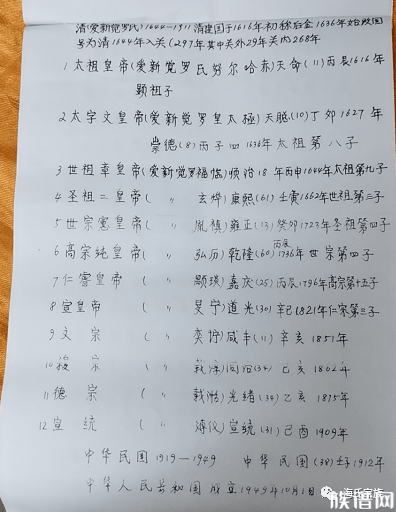 清(爱新觉罗氏)1644-1911清建国于1616年初称后金1636年始改国
号为清1644年入关(297年其中关外29年关内268年
1 太祖皇帝(爱新觉罗氏努尔哈赤)天命(11)丙辰1616年
颗祖子
2 太宇文皇帝(爱新觉罗皇太極)天聪(10)丁卯1627年
崇德(8)丙子四1636年太祖第八子
3 世祖章皇帝(爱新觉罗福临)顺治18年丙申1644年太祖第九子
4 圣祖仁皇帝(〃玄烨)康熙(61)壬寅1662年世祖第三子
5 世宗宪皇帝(〃胤禛)雍正(13)癸卯1723年圣祖第四子
6 高宗纯皇帝(〃弘历)乾隆(60)丙辰1736年世宗第四子
7 仁睿皇帝(〃颙琰)嘉庆(25)丙辰1796年高宗第十五子
8 宣皇帝(〃旻宁)道光(30)辛巳1821年仁宗第三子
9 文宗(〃奕詝)咸丰(11)辛亥1851年
10 穆宗(〃载淳)同治(34)乙亥1802年
11 德宗(〃载湉)光绪(34)乙亥1875年
12 宣统(〃溥仪)宣统(31)己酉1909年
中华民国1919-1949 中华民国(38)壬子1912年
中华人民共和国成立1949年10月1日
海氏家族
族谱网